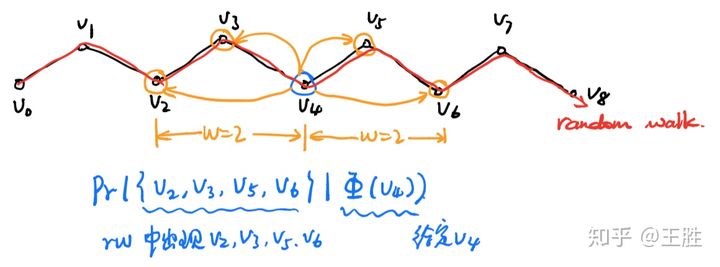 V₁ V₃ V₅ V₇
V₀ V₂ V₄ V₆ V₈
w=2 w=2
random walk.
Pr({V₂, V₃, V₅, V₆} | Φ(V₄))
rw 中出现 V₂, V₃, V₅. V₆ 给定 V₄
知乎 @王胜